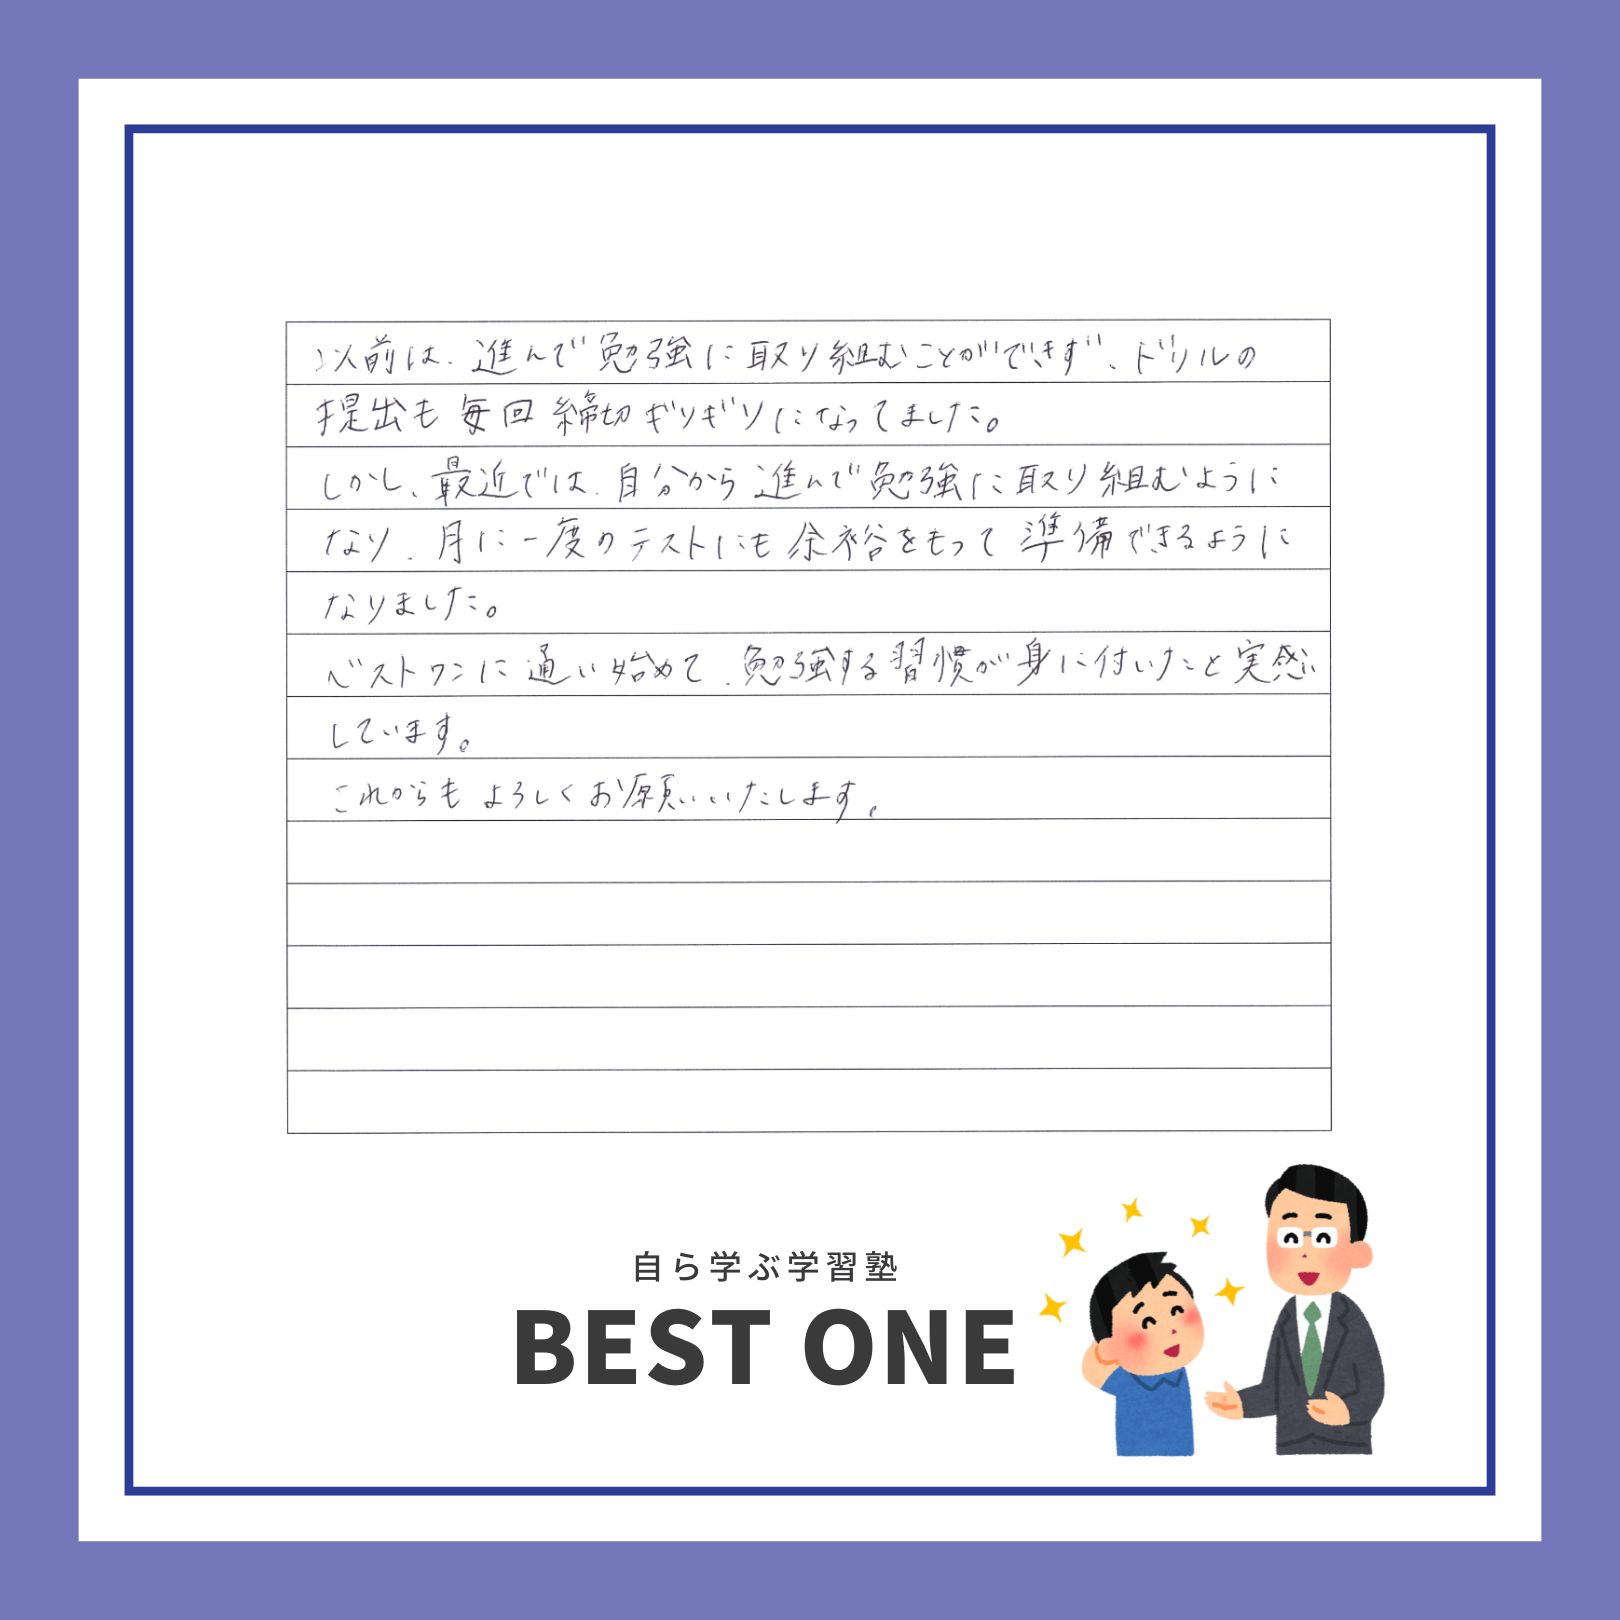 以前は、進んで勉強に取り組むことができず、ドリルの
提出も毎回締切ギリギリになってました。
しかし、最近では、自分から進んで勉強に取り組むように
なり、月に一度のテストにも余裕をもって準備できるように
なりました。
ベストワンに通い始めて、勉強する習慣が身に付いたこと実感
しています。
これからもよろしくお願いいたします。
自ら学ぶ学習塾
BEST ONE